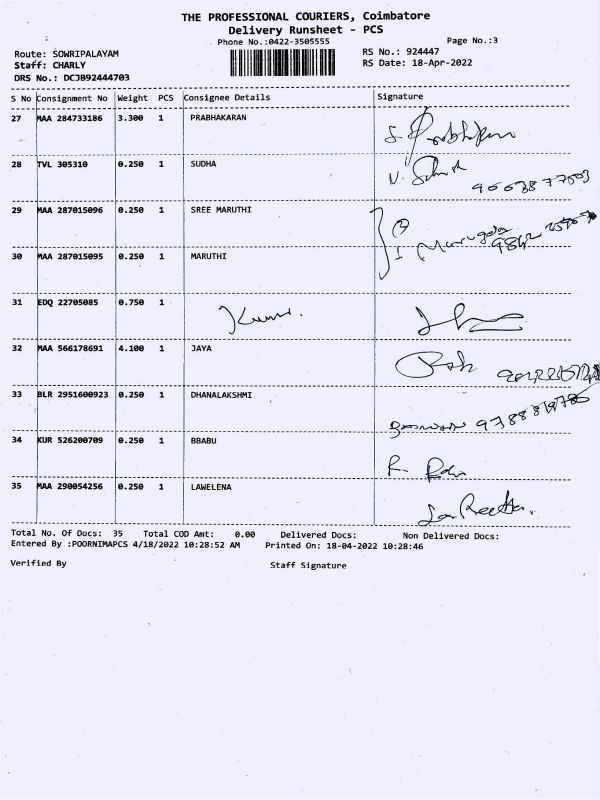 THE PROFESSIONAL COURIERS, Coimbatore
Delivery Runsheet - PCS
Phone No.:0422-3505555
Page No.:3
Route: SOWRIPALAYAM
RS No.: 924447
Staff: CHARLY
RS Date: 18-Apr-2022
DRS No.: DCJB92444703
S No Consignment No Weight PCS Consignee Details Signature
27 MAA 284733186 3.300 1 PRABHAKARAN
28 TVL 305310 0.250 1 SUDHA
29 MAA 287015096 0.250 1 SREE MARUTHI
30 MAA 287015095 0.250 1 MARUTHI
31 EDQ 22705085 0.750 1
32 MAA 566178691 4.100 1 JAYA
33 BLR 2951600923 0.250 1 DHANALAKSHMI
34 KUR 526200709 0.250 1 BBABU
35 MAA 290054256 0.250 1 LAWELENA
Total No. Of Docs: 35 Total COD Amt: 0.00 Delivered Docs: Non Delivered Docs:
Entered By :POORNIMAPCS 4/18/2022 10:28:52 AM Printed On: 18-04-2022 10:28:46
Verified By Staff Signature